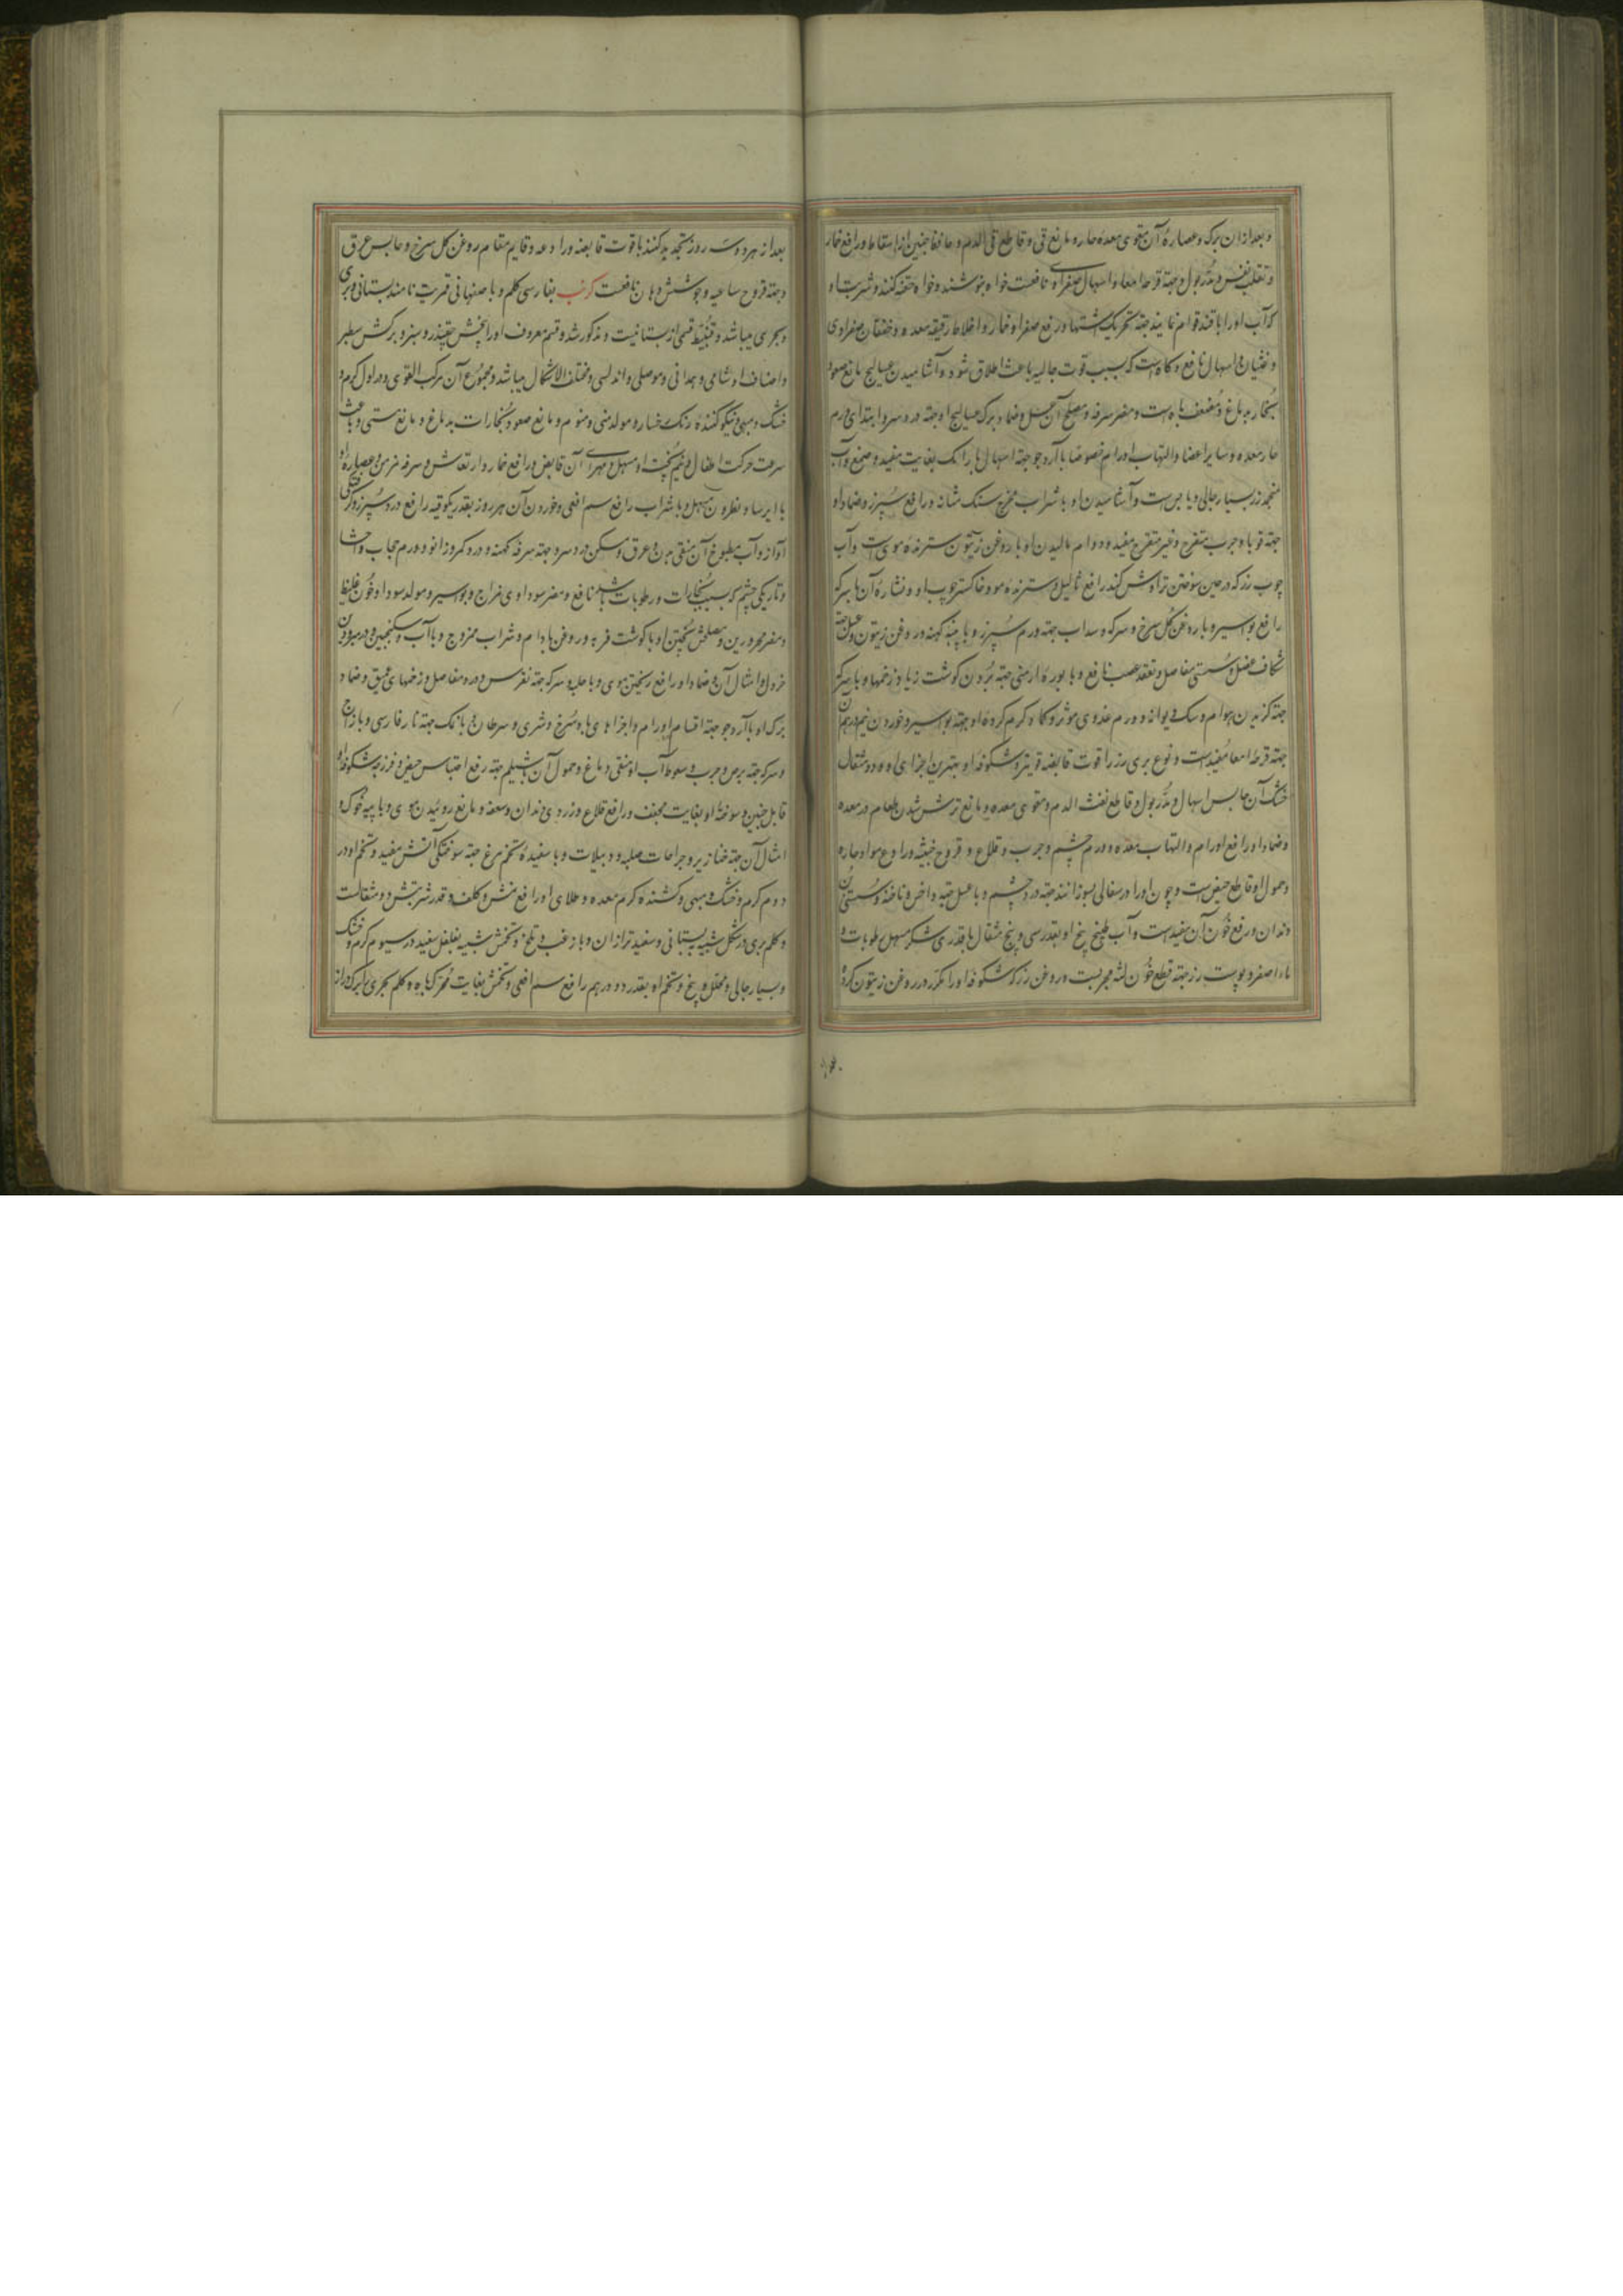 و بعد از ان برک و عصاره آن مقوی معده حاره و مانع قی و قاطع قی الدم و حافظ جنین از اسقاط و رافع خمار
و تقلب نفس و مدر بول و جهة قرحه امعا و اسهال صفراوی نافعست خواه بنوشند و خواه حقنه کنند و شربت او
که آب او را با قند قوام نمایند جهة تحریک اشتها و رفع صفرا و خمار و اخلاط رقیقه معده و خفقان صفراوی
و غثیان و اسهال نافع و کاه است که بسبب قوت جالیه باعث اطلاق شود و آشامیدن عسالیج مانع صعود
بخار بدماغ و مضعف باه است و مضر سرفه و مصلح آن عسل و ضماد برک عسالیج او جهة درد سر و ابتدای ورم
حار معده و سایر اعضا و التهاب اورام خصوصا با آرد جو جهة اسهال نمک بغایت مفید و صمغ و آب
منجمد رز بسیار جالی و یابس است و آشامیدن او با شراب مخرج سنک مثانه و رافع سپرز و ضماد او
جهة قوبا و جرب متقرح و غیر متقرح مفید و دوام مالیدن او با روغن زیتون سترنده موی است و آب
چوب رز که در حین سوختن تراوش کند رافع ثالیل و سترنده مو و خاکستر چوب او و نشاره آن با سرکه
رافع بواسیر و با روغن کل سرخ و سرکه و سداب جهة ورم سپرز و با پنبه کهنه در روغن زیتون و عسل جهة
شکاف عضل و سستی مفاصل و تعقد عصب نافع و با بوره ارمنی جهة بردن کوشت زیاد زخمها و با سرکه
جهة کزیدن هوام و سک دیوانه و ورم غددی موثر و کماد کرم کرده او جهة بواسیر و خوردن نیم درهم آن
جهة قرحه امعا مفید است و نوع بری رز را قوت قابضه قویتر و شکوفه او بهترین اجزای او و دو مثقال
خشک آن حابس اسهال و مدر بول و قاطع نفث الدم و مقوی معده و مانع ترش شدن طعام در معده
و ضماد او رافع اورام و التهاب معده و ورم چشم و جرب و قلاع و قروح خبیثه و رادع مواد حاره
و حمول او قاطع حیض است و چون او را در سفالی بسوزانند جهة درد چشم و با عسل جهة داخس و ناخنه و سستی بن
دندان و رفع خون آن مفید است و آب طبیخ بیخ او بقدر سی و پنج مثقال با قدری شکر مسهل رطوبات و
ماء اصفر و پوست رز جهة قطع خون لثه مجربست و روغن رز که شکوفه او را مکرر در روغن زیتون کرده
بعد از هر دو سه روز تجدید کنند با قوت قابضه و رادعه و قایم مقام روغن کل سرخ و حابس عرق
و جهة قروح ساعیه و جوشش دهان نافعست کرنب بفارسی کلم و باصفهانی قمریت نامند بستانی و بری
و بحری میباشد و قنبیط قسمی از بستانیست و مذکور شد و قسم معروف او را بیخش چغندر و سبز و برکش سطبر
و اصناف او شامی و همدانی و موصلی و اندلسی و مختلف الاشکال میباشد و مجموع آن مرکب القوی و در اول کرم و
خشک و مبهی و نیکو کننده رنک رخسار و مولد منی و منوم و مانع صعود بخارات بدماغ و مانع مستی و باعث
سرعت حرکت اطفال و نیم پخت او مسهل و مهرای آن قابض و رافع خمار و ارتعاش و سرفه مزمن و عصاره او
با ایرسا و نطرون مسهل و با شراب رافع سم افعی و خوردن آن هر روز بقدر یکوقیه رافع درد سپرز و کرفتکی
آواز و آب مطبوخ آن منقی بدن و عرق و مسکن درد سر و جهة سرفه کهنه و درد کمر و زانو و ورم حجاب و احشا
و تاریکی چشم که بسبب بخارات و رطوبات باشد نافع و مضر سوداوی مزاج و بواسیر و مولد سودا و خون غلیظ
و مضر محرورین و مصلحش پختن او با کوشت فربه و روغن بادام و شراب ممزوج و با آب و سکنجبین و در مبرودین
خردل و امثال آن و ضماد او رافع ریختن موی و با حلبه و سرکه جهة نقرس و درد مفاصل و زخمهای عمیق و ضماد
برک او با آرد جو جهة اقسام اورام و اجزاهای باد سرخ و شری و سرطان و با نمک جهة نار فارسی و با زاج
و سرکه جهة برص و جرب و سعوط آب او منقی دماغ و حمول آن با شیلم جهة رفع احتباس حیض و فرزجه شکوفه او
قاتل جنین و سوخته او بغایت مجفف و رافع قلاع و زردی دندان و سعفه و مانع روئیدن موی و با پیه خوک و
امثال آن جهة خنازیر و جراحات صلبه و دبیلات و با سفیده تخم مرغ جهة سوختکی آتش مفید و تخم او در
دوم کرم و خشک و مبهی و کشنده کرم معده و طلای او رافع نمش و کلف و قدر شربتش دو مثقالست
و کلم بری در شکل شبیه ببستانی و سفیدتر از ان و با زغب و تلخ و تخمش شبیه بفلفل سفید در سیوم کرم و خشک
و بسیار جالی و محلل و بیخ و تخم او بقدر دو درهم رافع سم افعی و تخمش بغایت محرک باه و کلم بحری را برک دراز